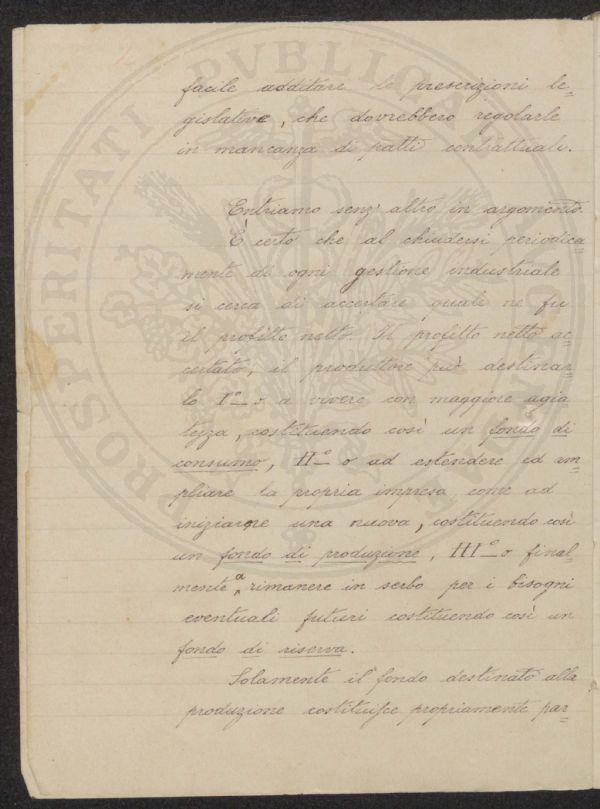 facile additare le prescrizioni le=
gislative, che dovrebbero regolarle
in mancanza di patti contrattuali.
Entriamo senz' altro in argomento.
È certo che al chiudersi periodica
mente di ogni gestione industriale
si cerca di accertare quali ne fu
il profitto netto. Il profitto netto ac=
certato, il produttore può destinar=
lo Iº o a vivere con maggiore agia
tezza, costituendo così un fondo di
consumo, IIº o ad estendere ed am=
pliare la propria impresa come ad
iniziarne una nuova, costituendo così
un fondo di produzione, IIIº o final=
mente a rimanere in serbo per i bisogni
eventuali futuri costituendo così un
fondo di riserva.
Solamente il fondo destinato alla
produzione costituisce propriamente par=
PROSPERITATI PVBLICAE